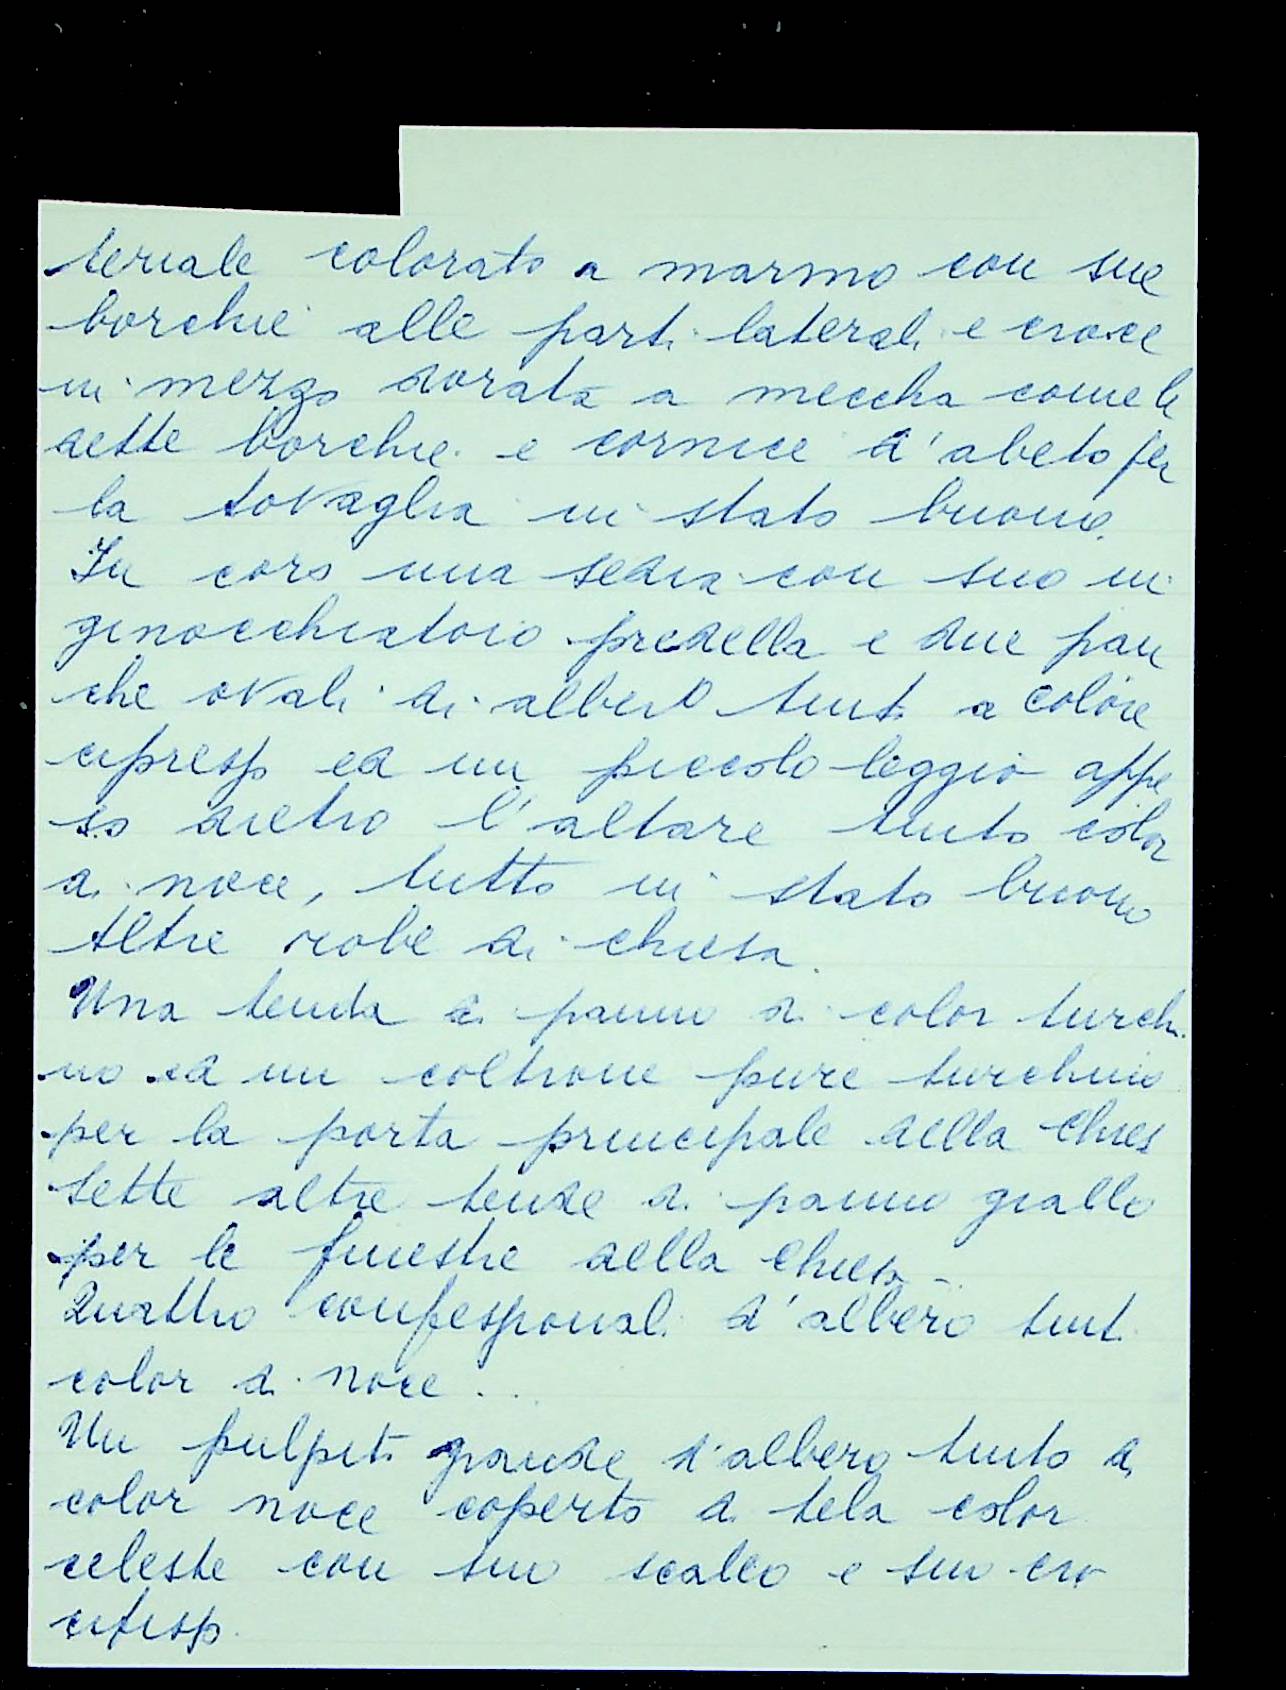 teriale colorato a marmo con sue
borchie alle parti laterali e croce
in mezzo dorata a meccha come le
dette borchie e cornice d'abeto per
la tovaglia in stato buono.
In coro una sedia con suo in
ginocchiatoio predella e due pan
che ovali di albero tinti a colore
cipresso ed un piccolo leggio appe
so dietro l'altare tinto color
di noce, tutto in stato buono
Altre robe di chiesa.
Una tenda di panno di color turchi
no ed un coltrone pure turchino
per la porta principale della Chies
Sette altre tende di panno giallo
per le finestre della Chiesa -
Quattro confessionali d'albero tinti
color di noce...
Un pulpiti grande d'albero tinto di
color noce coperto di tela color
celeste con suo scaleo e suo cro
cifisso.